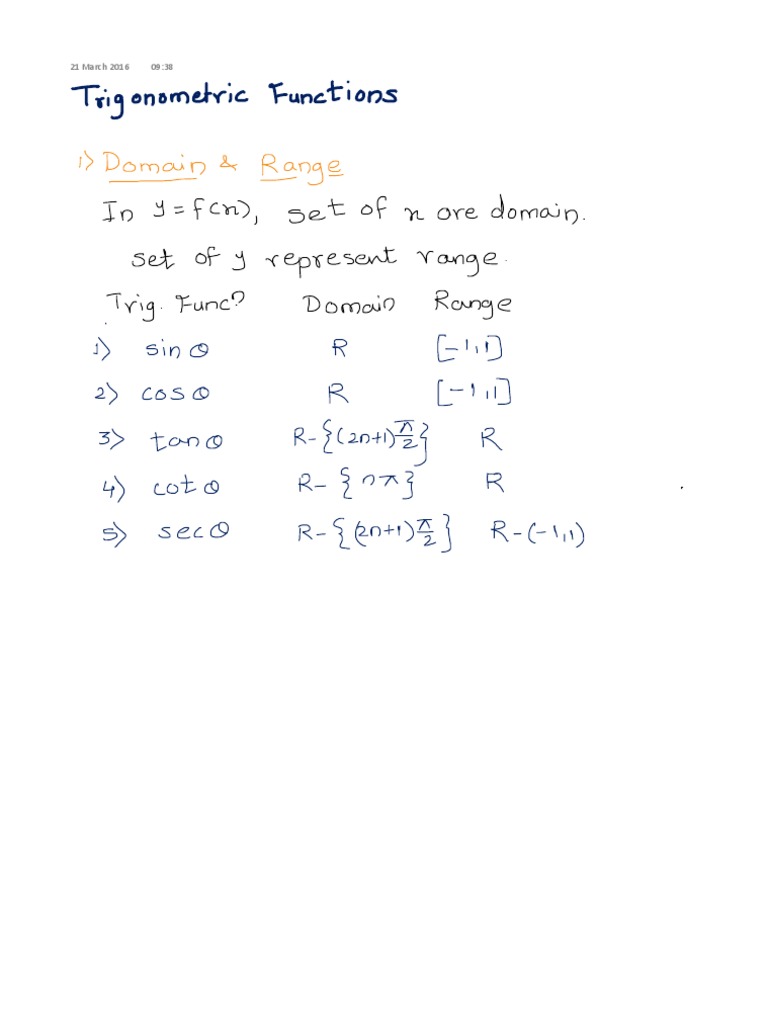 21 March 2016 09:38
Trigonometric Functions
1) Domain & Range
In y = f(x), set of x are domain.
set of y represent range.
Trig. Func? Domain Range
1) sin θ R [-1,1]
2) cos θ R [-1,1]
3) tan θ R-{(2n+1)π/2} R
4) cot θ R-{nπ} R
5) sec θ R-{(2n+1)π/2} R-(-1,1)